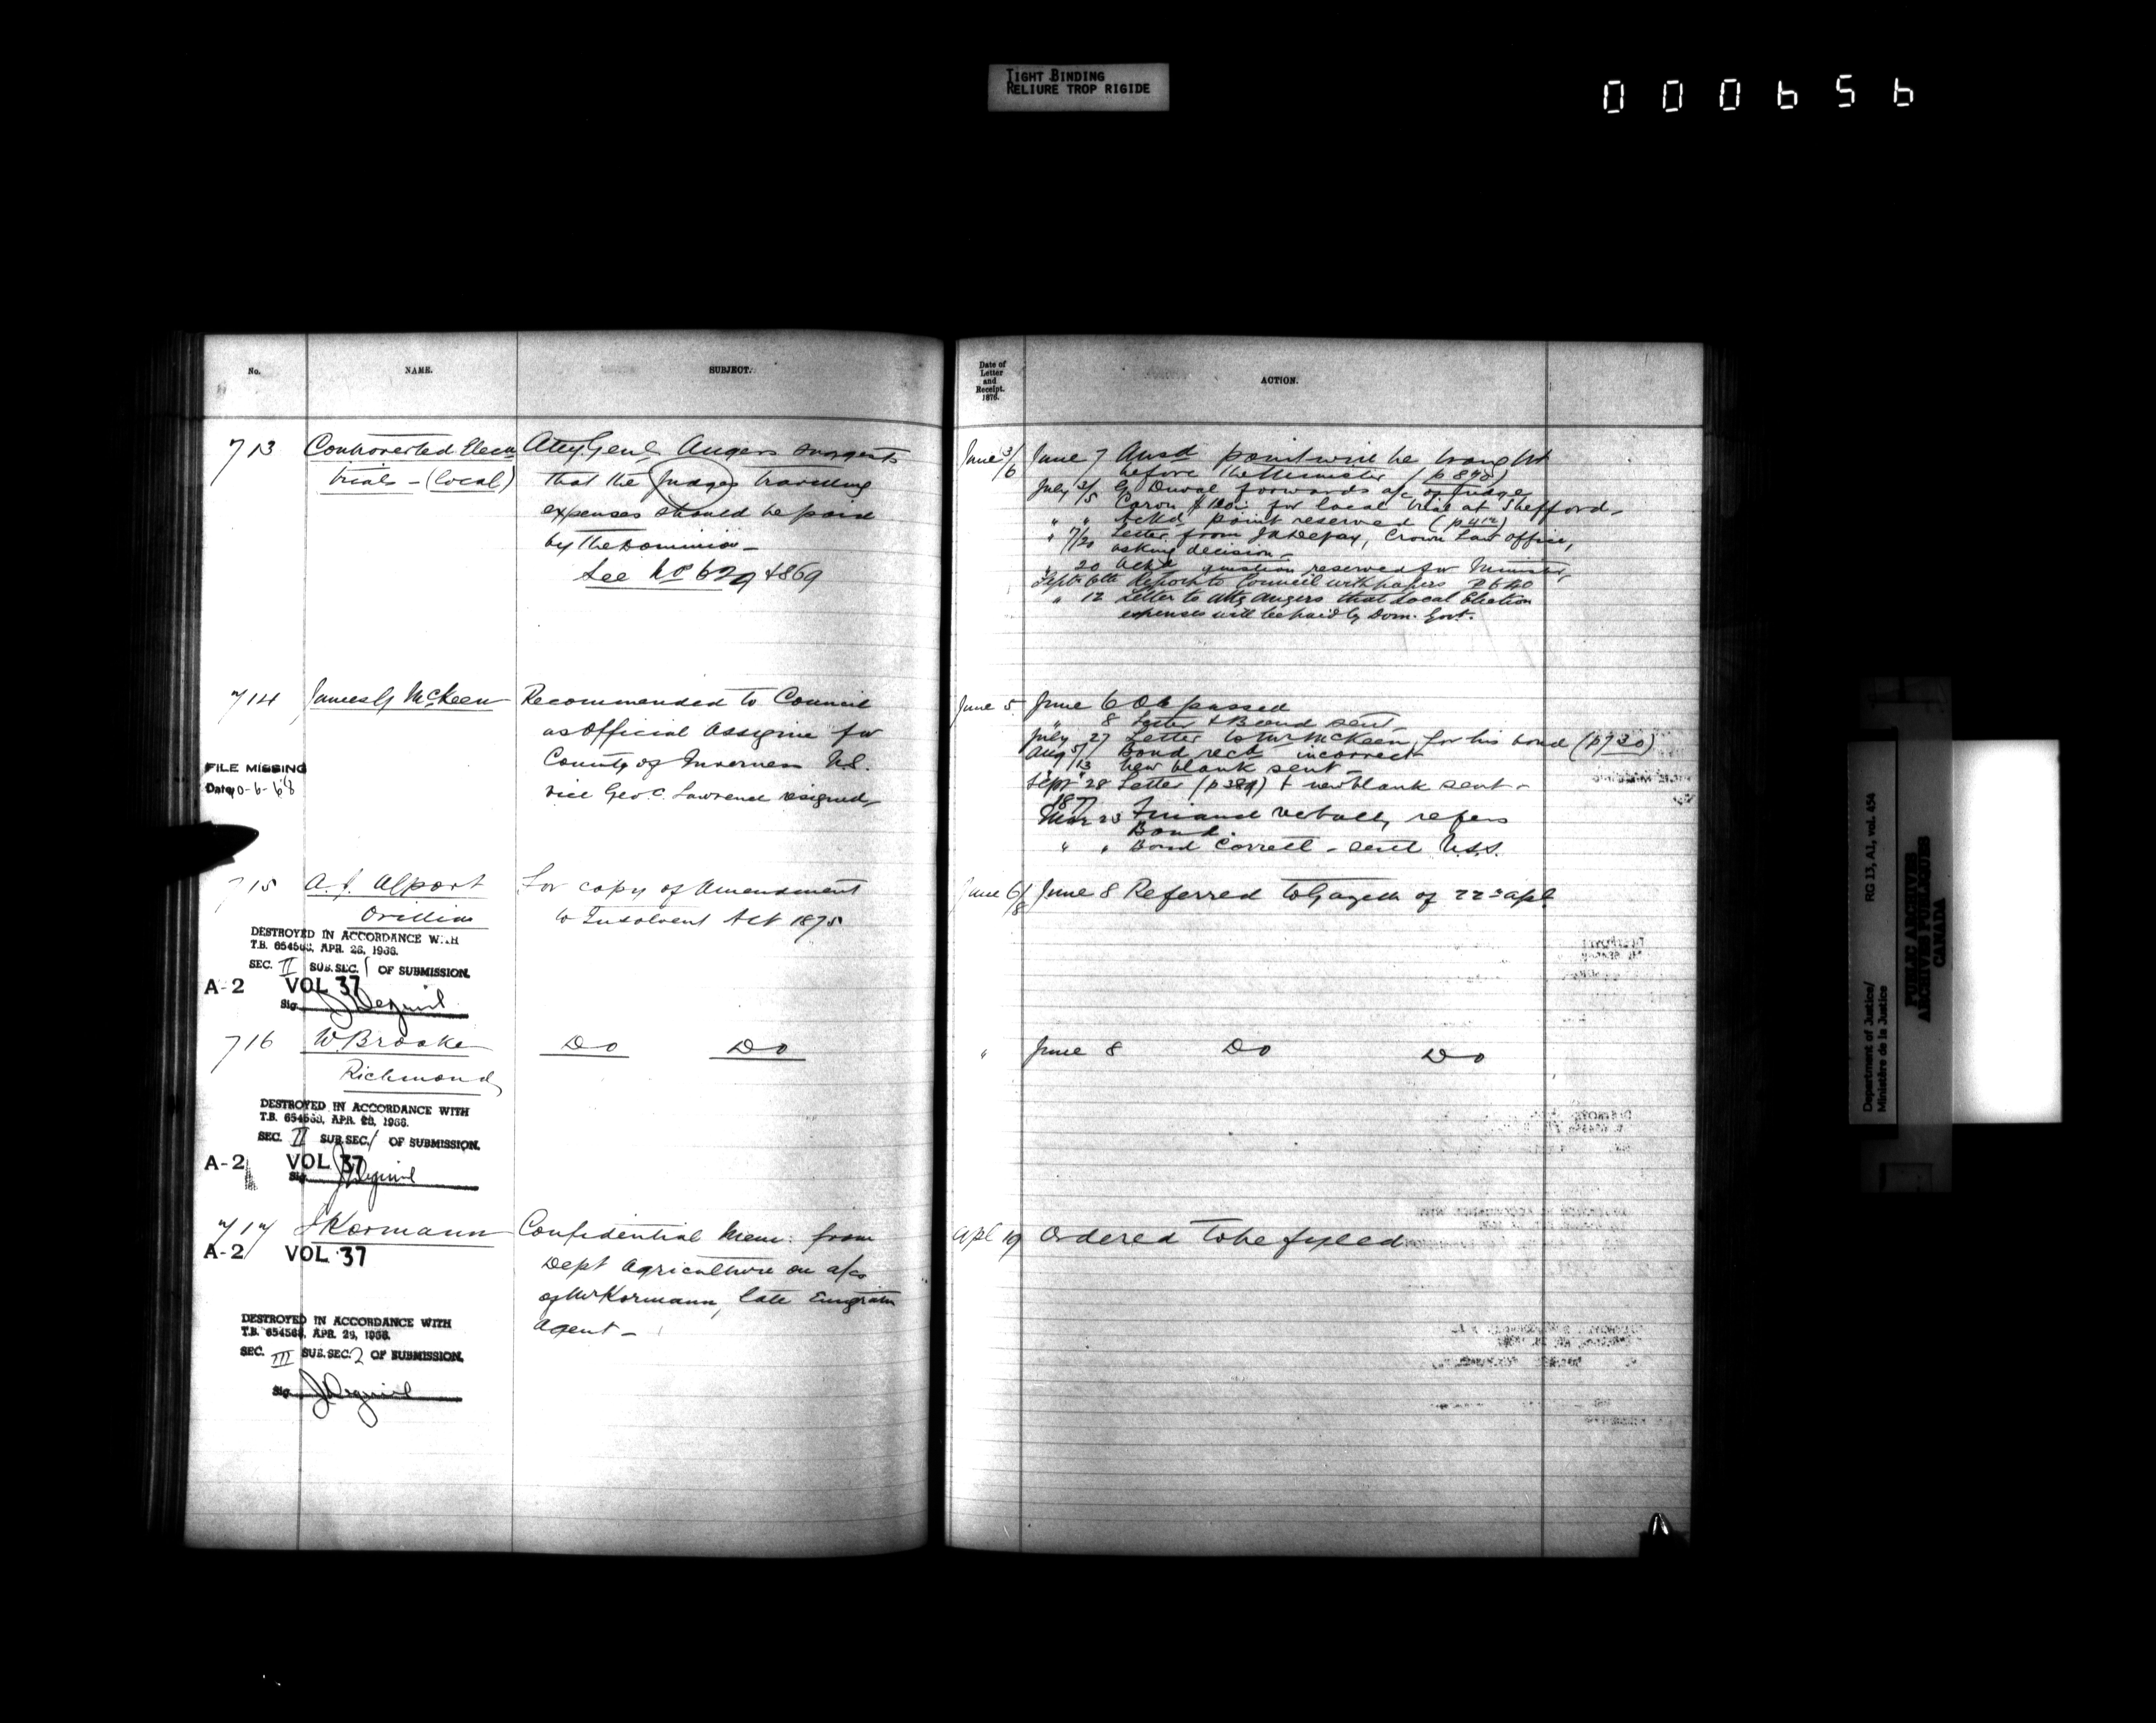 TIGHT BINDING
RELIURE TROP RIGIDE
000656
No.
NAME.
SUBJECT.
713
Controverted Elecn
trials - (local)
Atty Genl Angers suggests
that the Judges travelling
expenses should be paid
by the Dominion -
See No 629 & 869
714
James G McKeen
FILE MISSING
Date 10-6-68
Recommended to Council
as Official Assignee for
County of Inverness N.S.
vice Geo. C. Lawrence resigned
715
A. J. Alport
Orillia
For copy of Amendment
to Insolvent Act 1875
DESTROYED IN ACCORDANCE WITH
T.B. 654568, APR. 28, 1966.
SEC. II SUB. SEC. 1 OF SUBMISSION.
A-2 VOL 37
Sig.
716
W. Brooke
Richmond
Do Do
DESTROYED IN ACCORDANCE WITH
T.B. 654568, APR. 28, 1966.
SEC. II SUB. SEC. 1 OF SUBMISSION.
A-2 VOL 37
Sig.
717
Kormann
A-2 VOL 37
Confidential Mem: from
Dept Agriculture on a/c
of Mr Kormann, late Emigratn
Agent -
DESTROYED IN ACCORDANCE WITH
T.B. 654568, APR. 28, 1966.
SEC. III SUB. SEC. 2 OF SUBMISSION.
Sig.
Date of
Letter
and
Receipt.
1876.
ACTION.
June 3/6
June 7 Ansd point will be brought
before the Minister (p 898)
July 3/5 G Duval forwards a/c of Judge
Caron $120. for local trial at Shefford -
" " Ackd point reserved (p 412)
" 7/20 Letter from , Crown Law Office,
asking decision -
" 20 Ackd question reserved for Minister,
Sept 6th Report to Council with papers
" 12 Letter to Atty Angers that Local Election
expenses will be paid by Dom. Govt.
June 5
June 6 OC passed
" 8 Letter & Bond sent
July 27 Letter to Mr McKeen for his bond (p 730)
Aug 5/7 Bond recd incorrect
" 13 New blank sent -
Sept 28 Letter (p 389) & new blank sent -
1877
Mar 23 Finance verbally refers
Bond.
" " Bond Correct - sent U.S.S.
June 6/8
June 8 Referred to Gazette of 22nd Apl
"
June 8 Do Do
Apl 19
Ordered to be fyled
RG 13, A1, vol. 454
Department of Justice/
Ministère de la Justice
PUBLIC ARCHIVES
ARCHIVES PUBLIQUES
CANADA